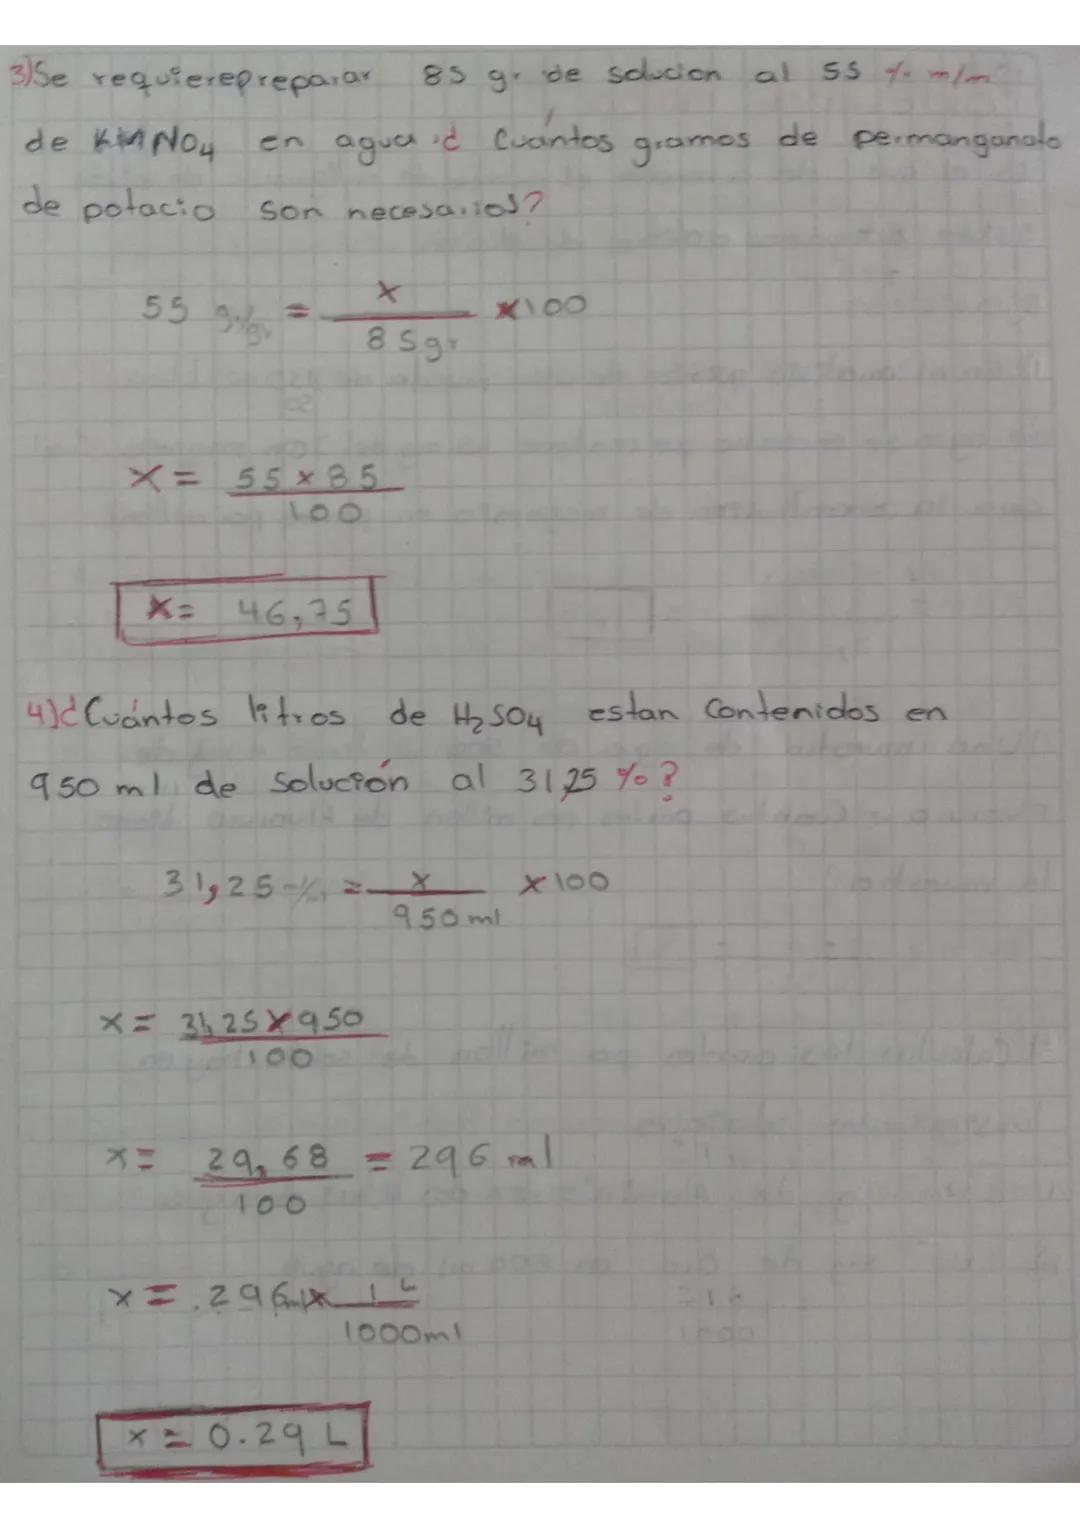 3) Se requiere preparar 85 gr de solucion al 55 % m/m
de KMNO4 en agua ¿ Cuántos gramos de permanganato
de potacio son necesarios?
55 gr/gr = x / 85gr x100
x = 55 x 85 / 100
x = 46,75
4) ¿Cuántos litros de H2SO4 estan Contenidos en
950 ml de Solución al 31,25 % ?
31,25 = x / 950 ml x100
x = 31,25 x 950 / 100
x = 29,68 / 100 = 296 ml
x = .296ml x 1 L / 1000ml
x = 0.29 L